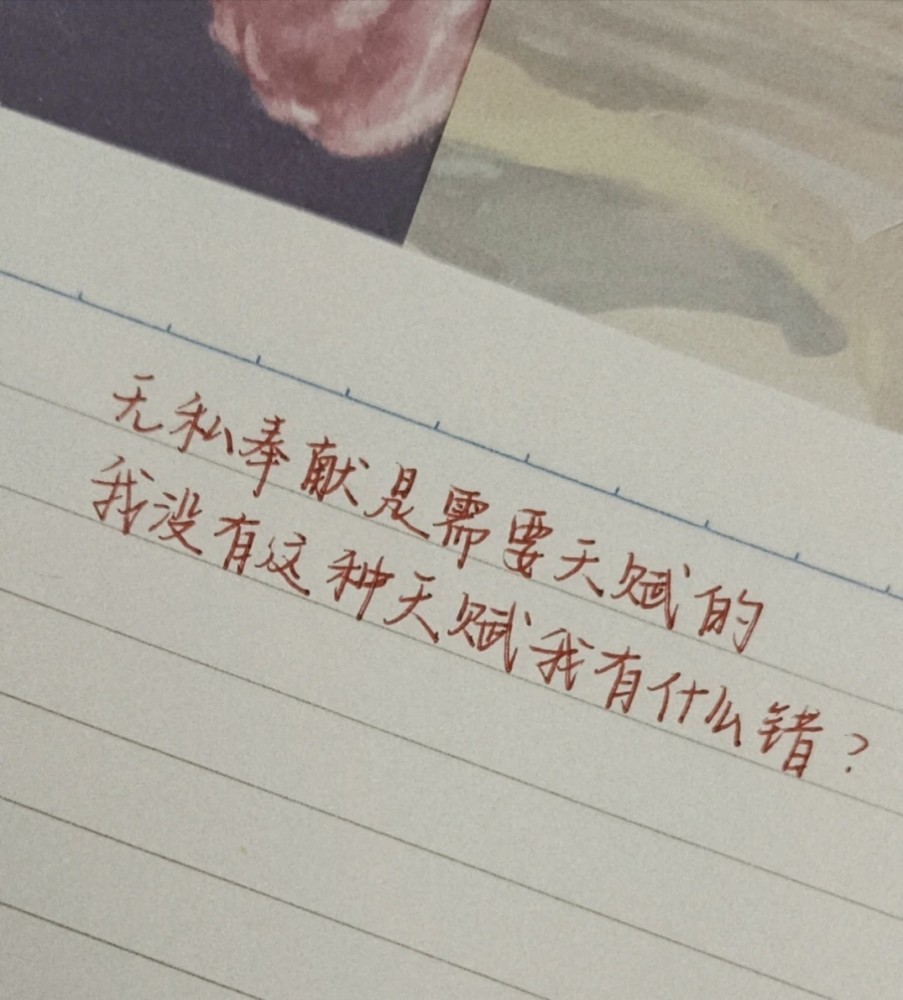 无私奉献是需要天赋的
我没有这种天赋我有什么错？